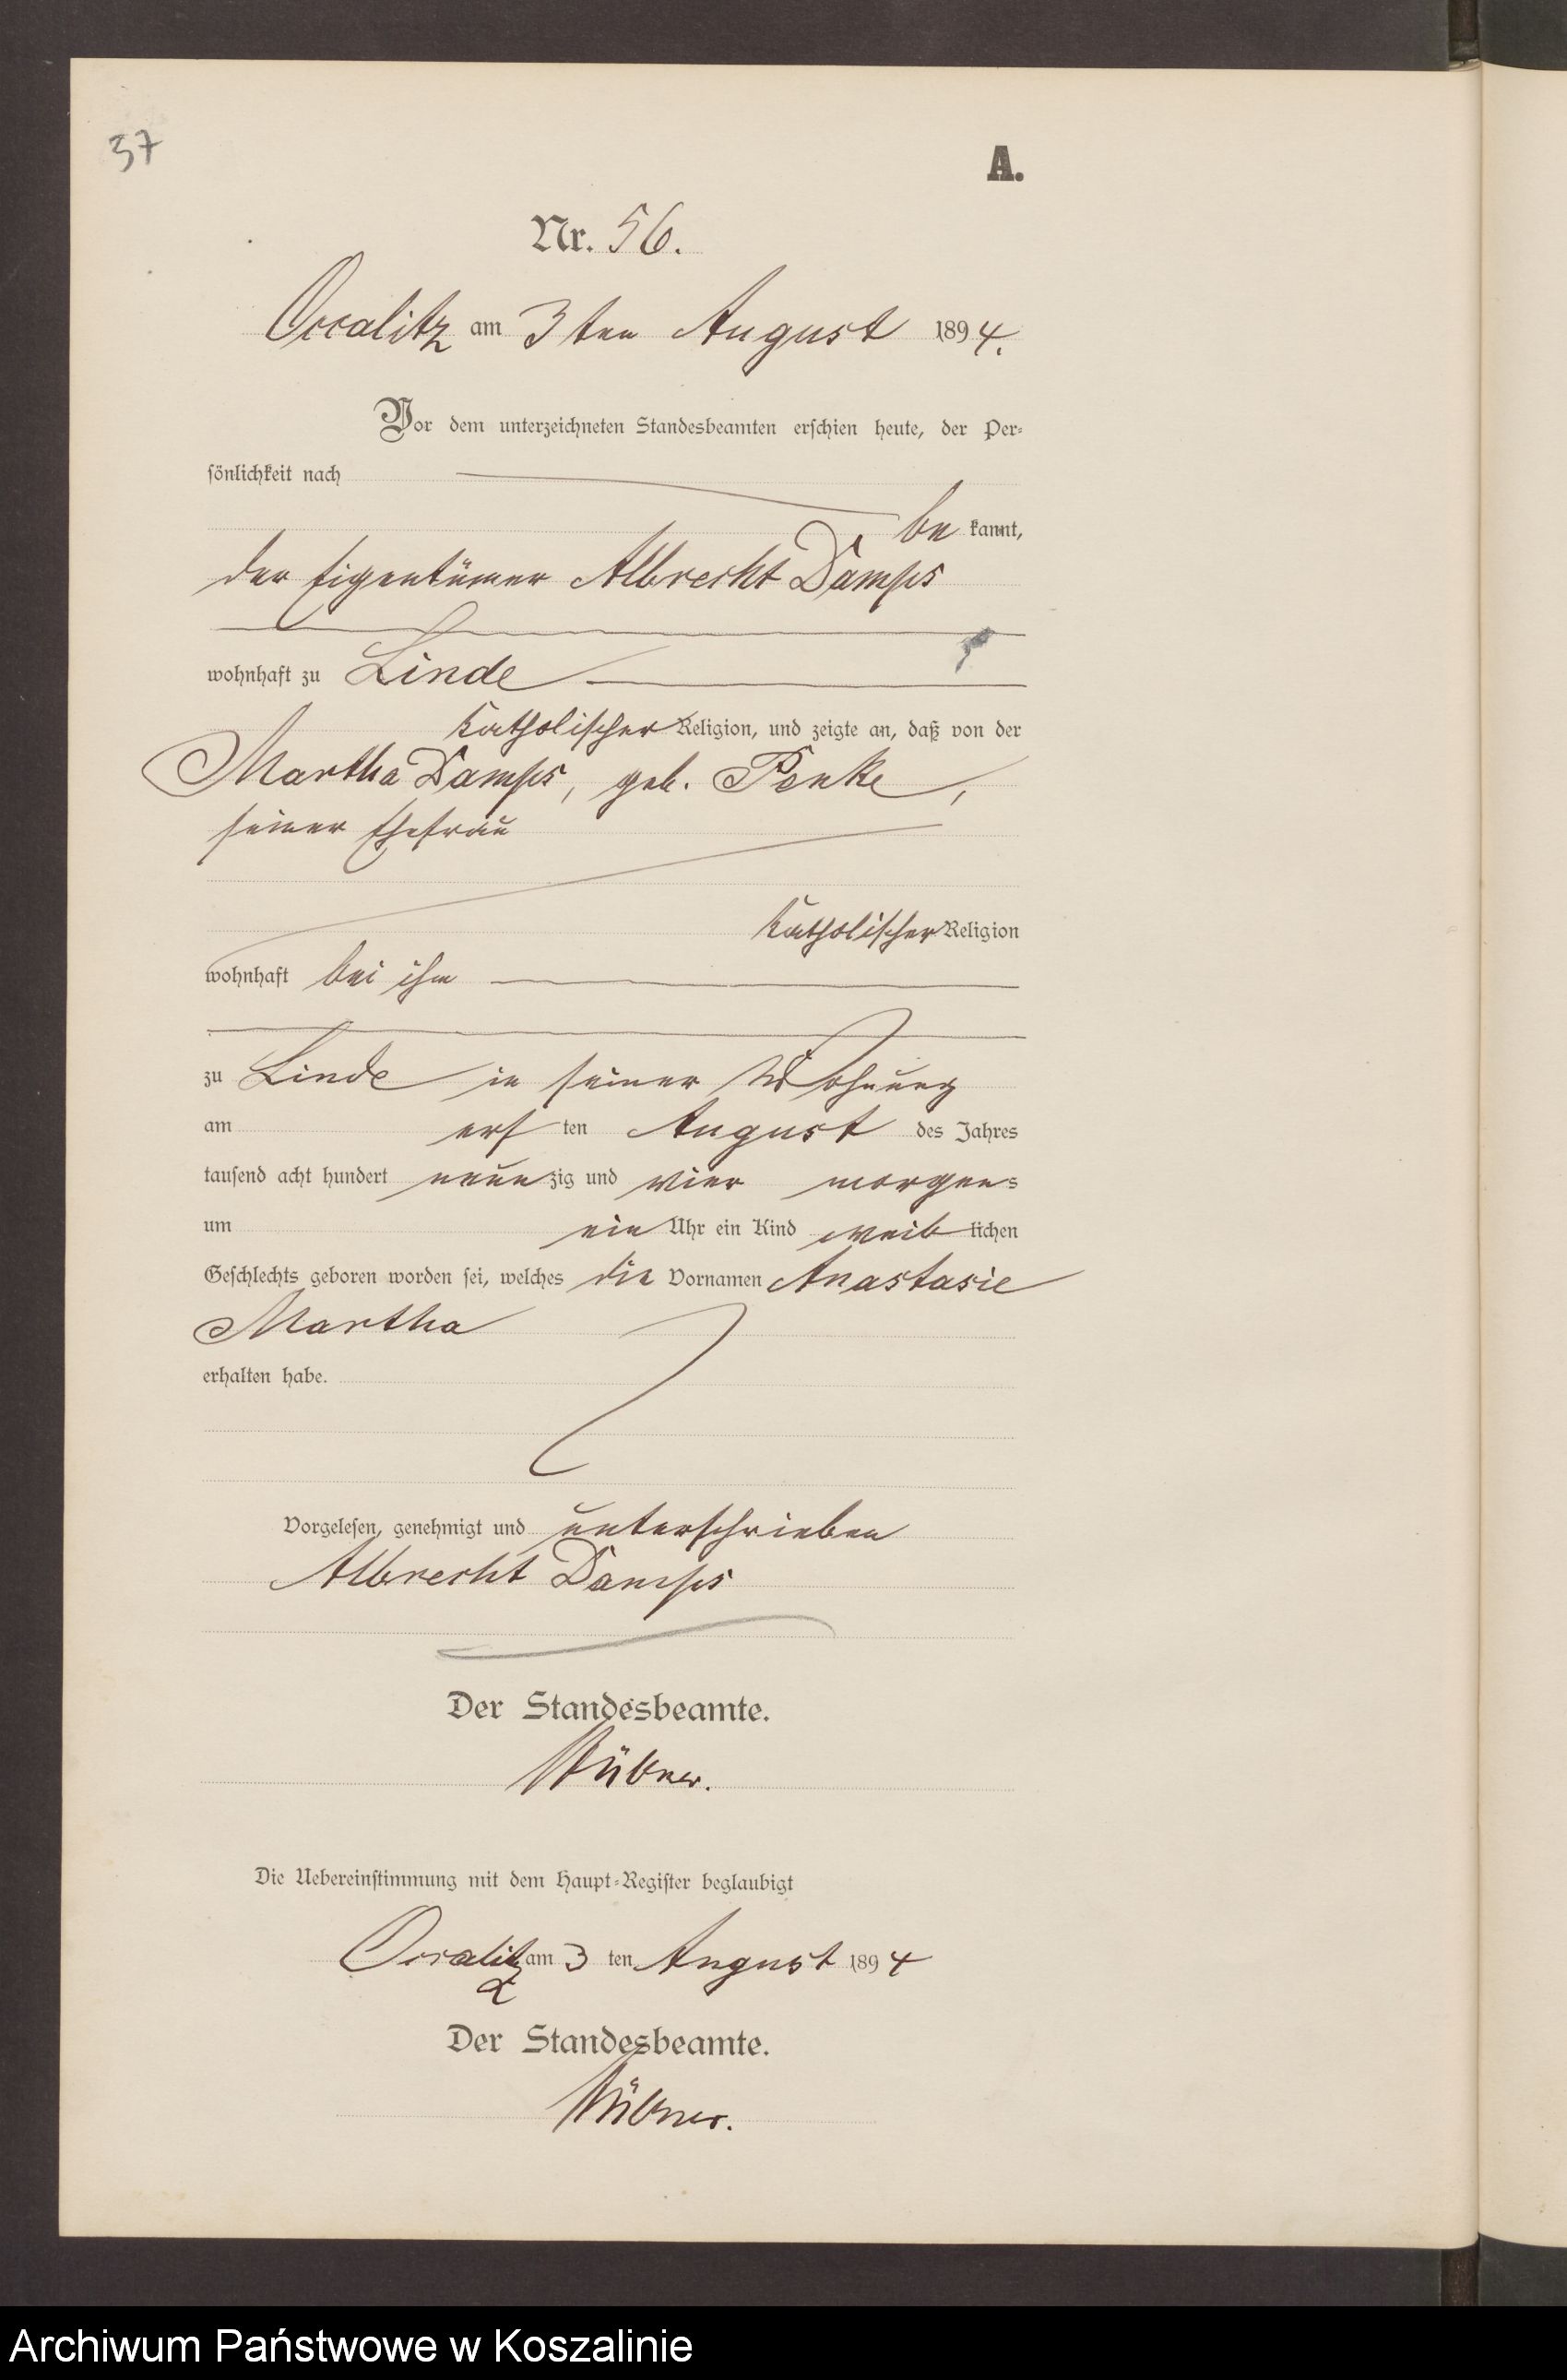 37
A.
Nr. 56.
Occalitz am 3ten August 1894.
Vor dem unterzeichneten Standesbeamten erschien heute, der Per-
sönlichkeit nach
be kannt,
der Eigentümer Albrecht Damps
wohnhaft zu Linde
katholischer Religion, und zeigte an, daß von der
Martha Damps, geb. Penke,
seiner Ehefrau
katholischer Religion
wohnhaft bei ihm
zu Linde in seiner Wohnung
am ersten August des Jahres
tausend acht hundert neunzig und vier morgens
um ein Uhr ein Kind weiblichen
Geschlechts geboren worden sei, welches die Vornamen Anastasie
Martha
erhalten habe.
Vorgelesen, genehmigt und unterschrieben
Albrecht Damps
Der Standesbeamte.
Die Uebereinstimmung mit dem Haupt-Register beglaubigt
Occalitz am 3 ten August 1894
Der Standesbeamte.
Archiwum Państwowe w Koszalinie